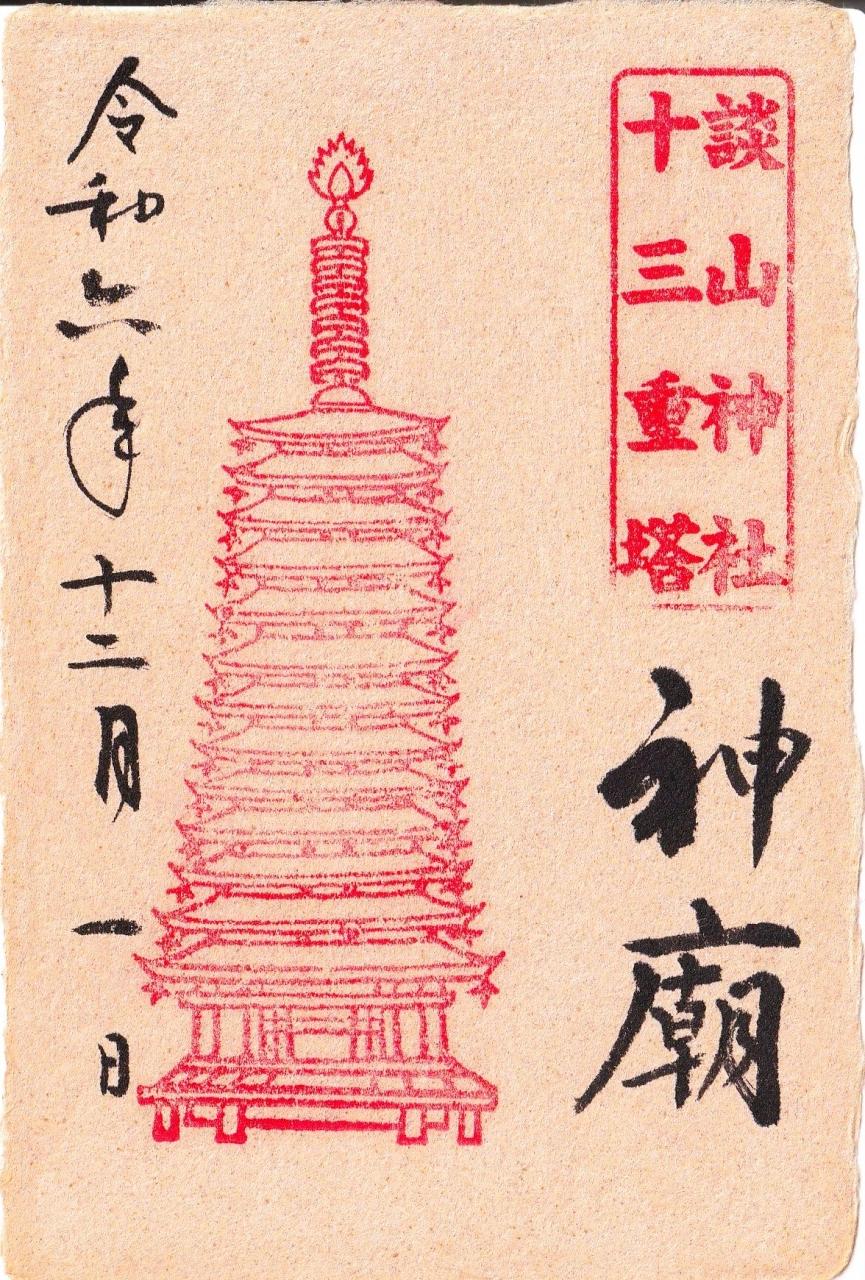 談山神社
十三重塔
神廟
令和六年十二月一日